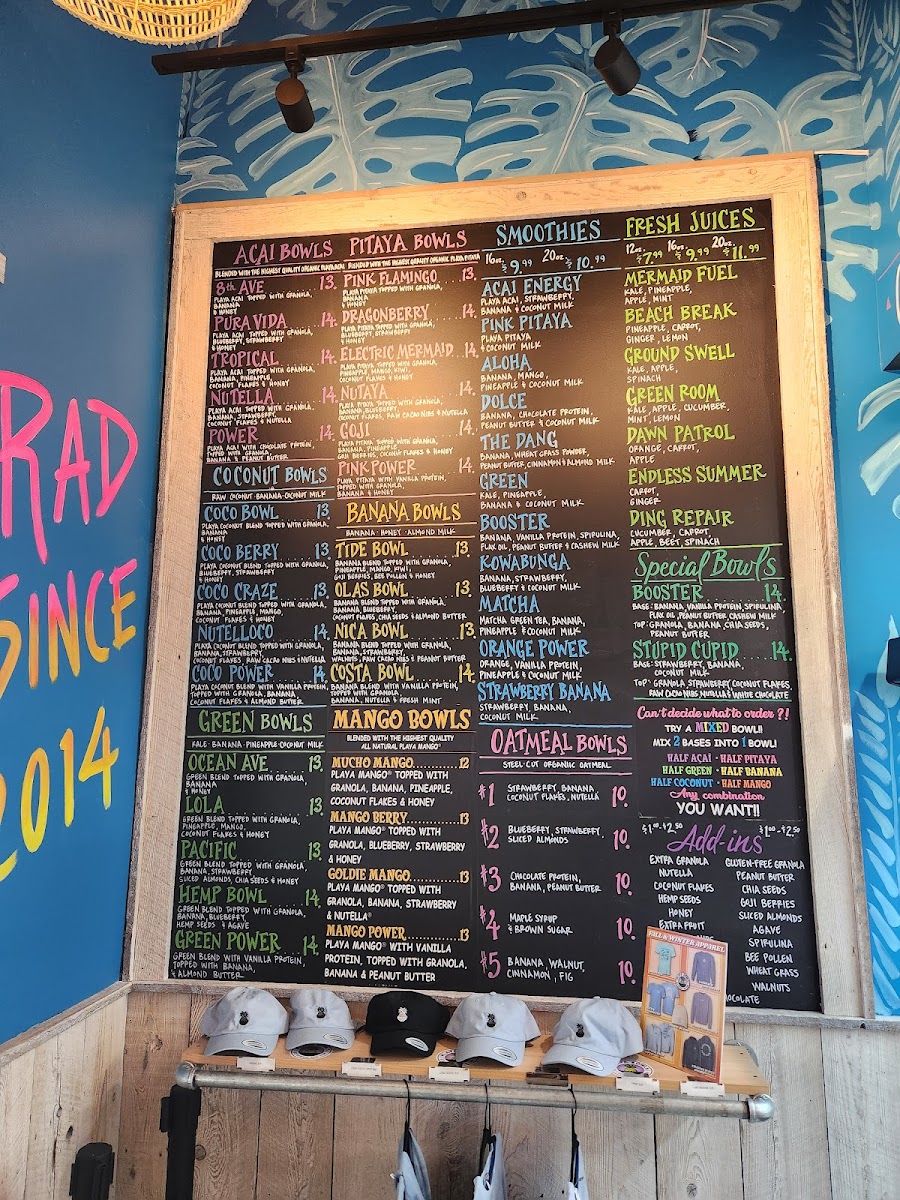 RAD
SINCE
2014
ACAI BOWLS
BLENDED WITH THE HIGHEST QUALITY ORGANIC PLAYA ACAI
8th AVE 13.
PLAYA ACAI TOPPED WITH GRANOLA,
BANANA
& HONEY
PURA VIDA 14.
PLAYA ACAI TOPPED WITH GRANOLA,
BLUEBERRY, STRAWBERRY
& HONEY
TROPICAL 14.
PLAYA ACAI TOPPED WITH GRANOLA,
BANANA, PINEAPPLE,
COCONUT FLAKES & HONEY
NUTELLA 14.
PLAYA ACAI TOPPED WITH GRANOLA,
BANANA, STRAWBERRY,
COCONUT FLAKES & NUTELLA
POWER 14.
PLAYA ACAI WITH CHOCOLATE PROTEIN,
TOPPED WITH GRANOLA,
BANANA & PEANUT BUTTER
COCONUT BOWLS
RAW COCONUT·BANANA·COCONUT MILK
COCO BOWL 13.
PLAYA COCONUT BLEND TOPPED WITH GRANOLA,
BANANA
& HONEY
COCO BERRY 13.
PLAYA COCONUT BLEND TOPPED WITH GRANOLA,
BLUEBERRY, STRAWBERRY
& HONEY
COCO CRAZE 13.
PLAYA COCONUT BLEND TOPPED WITH GRANOLA,
BANANA, PINEAPPLE, MANGO,
COCONUT FLAKES & HONEY
NUTELLOCO 14.
PLAYA COCONUT BLEND TOPPED WITH GRANOLA,
BANANA, STRAWBERRY,
COCONUT FLAKES, RAW CACAO NIBS & NUTELLA
COCO POWER 14.
PLAYA COCONUT BLEND WITH VANILLA PROTEIN,
TOPPED WITH GRANOLA, BANANA,
COCONUT FLAKES & ALMOND BUTTER
GREEN BOWLS
KALE·BANANA·PINEAPPLE·COCONUT MILK
OCEAN AVE 13.
GREEN BLEND TOPPED WITH GRANOLA,
BANANA
& HONEY
LOLA 13.
GREEN BLEND TOPPED WITH GRANOLA,
PINEAPPLE, MANGO,
COCONUT FLAKES & HONEY
PACIFIC 13.
GREEN BLEND TOPPED WITH GRANOLA,
BANANA, STRAWBERRY
SLICED ALMONDS, CHIA SEEDS & HONEY
HEMP BOWL 14.
GREEN BLEND TOPPED WITH GRANOLA,
BANANA, BLUEBERRY,
HEMP SEEDS & AGAVE
GREEN POWER 14.
GREEN BLEND WITH VANILLA PROTEIN,
TOPPED WITH BANANA,
& ALMOND BUTTER
PITAYA BOWLS
BLENDED WITH THE HIGHEST QUALITY ORGANIC PLAYA PITAYA
PINK FLAMINGO 13.
PLAYA PITAYA TOPPED WITH GRANOLA,
BANANA
& HONEY
DRAGONBERRY 14.
PLAYA PITAYA TOPPED WITH GRANOLA,
BLUEBERRY, STRAWBERRY
& HONEY
ELECTRIC MERMAID 14.
PLAYA PITAYA TOPPED WITH GRANOLA,
PINEAPPLE, MANGO, KIWI,
COCONUT FLAKES & HONEY
NUTAYA 14.
PLAYA PITAYA TOPPED WITH GRANOLA,
BANANA, BLUEBERRY,
COCONUT FLAKES, RAW CACAO NIBS & NUTELLA
GOJI 14.
PLAYA PITAYA TOPPED WITH GRANOLA,
BANANA, PINEAPPLE,
GOJI BERRIES, COCONUT FLAKES & HONEY
PINK POWER 14.
PLAYA PITAYA WITH VANILLA PROTEIN,
TOPPED WITH GRANOLA,
BANANA & HONEY
BANANA BOWLS
BANANA·HONEY·ALMOND MILK
TIDE BOWL 13.
BANANA BLEND TOPPED WITH GRANOLA,
PINEAPPLE, MANGO, KIWI,
GOJI BERRIES, BEE POLLEN & HONEY
OLAS BOWL 13.
BANANA BLEND TOPPED WITH GRANOLA,
BANANA, BLUEBERRY,
COCONUT FLAKES, CHIA SEEDS & ALMOND BUTTER
NICA BOWL 13.
BANANA BLEND TOPPED WITH GRANOLA,
BANANA, STRAWBERRY,
WALNUTS, RAW CACAO NIBS & PEANUT BUTTER
COSTA BOWL 14.
BANANA BLEND WITH VANILLA PROTEIN,
TOPPED WITH GRANOLA,
BANANA, NUTELLA & FRESH MINT
MANGO BOWLS
BLENDED WITH THE HIGHEST QUALITY
ALL NATURAL PLAYA MANGO®
MUCHO MANGO..........12
PLAYA MANGO® TOPPED WITH
GRANOLA, BANANA, PINEAPPLE,
COCONUT FLAKES & HONEY
MANGO BERRY..........13
PLAYA MANGO® TOPPED WITH
GRANOLA, BLUEBERRY, STRAWBERRY
& HONEY
GOLDIE MANGO..........13
PLAYA MANGO® TOPPED WITH
GRANOLA, BANANA, STRAWBERRY
& NUTELLA®
MANGO POWER..........13
PLAYA MANGO® WITH VANILLA
PROTEIN, TOPPED WITH GRANOLA,
BANANA & PEANUT BUTTER
SMOOTHIES
16oz. $9.99 20oz. $10.99
ACAI ENERGY
PLAYA ACAI, STRAWBERRY,
BANANA & COCONUT MILK
PINK PITAYA
PLAYA PITAYA
& COCONUT MILK
ALOHA
BANANA, MANGO,
PINEAPPLE & COCONUT MILK
DOLCE
BANANA, CHOCOLATE PROTEIN,
PEANUT BUTTER & COCONUT MILK
THE DANG
BANANA, WHEAT GRASS POWDER,
PEANUT BUTTER, CINNAMON & ALMOND MILK
GREEN
KALE, PINEAPPLE,
BANANA & COCONUT MILK
BOOSTER
BANANA, VANILLA PROTEIN, SPIRULINA,
FLAX OIL, PEANUT BUTTER & CASHEW MILK
KOWABUNGA
BANANA, STRAWBERRY,
BLUEBERRY & COCONUT MILK
MATCHA
MATCHA GREEN TEA, BANANA,
PINEAPPLE & COCONUT MILK
ORANGE POWER
ORANGE, VANILLA PROTEIN,
PINEAPPLE & COCONUT MILK
STRAWBERRY BANANA
STRAWBERRY, BANANA,
COCONUT MILK
OATMEAL BOWLS
STEEL-CUT ORGANIC OATMEAL
#1 STRAWBERRY, BANANA, 10.
COCONUT FLAKES, NUTELLA
#2 BLUEBERRY, STRAWBERRY, 10.
SLICED ALMONDS
#3 CHOCOLATE PROTEIN, 10.
BANANA, PEANUT BUTTER
#4 MAPLE SYRUP 10.
& BROWN SUGAR
#5 BANANA, WALNUT, 10.
CINNAMON, FIG
FRESH JUICES
12oz. $7.99 16oz. $9.99 20oz. $11.99
MERMAID FUEL
KALE, PINEAPPLE,
APPLE, MINT
BEACH BREAK
PINEAPPLE, CARROT,
GINGER, LEMON
GROUND SWELL
KALE, APPLE,
SPINACH
GREEN ROOM
KALE, APPLE, CUCUMBER,
MINT, LEMON
DAWN PATROL
ORANGE, CARROT,
APPLE
ENDLESS SUMMER
CARROT,
GINGER
DING REPAIR
CUCUMBER, CARROT,
APPLE, BEET, SPINACH
Special Bowls
BOOSTER 14.
BASE: BANANA, VANILLA PROTEIN, SPIRULINA
FLAX OIL, PEANUT BUTTER, CASHEW MILK
TOP: GRANOLA, BANANA, CHIA SEEDS,
PEANUT BUTTER
STUPID CUPID 14.
BASE: STRAWBERRY, BANANA,
COCONUT MILK
TOP: GRANOLA, STRAWBERRY, COCONUT FLAKES,
RAW CACAO NIBS, NUTELLA & WHITE CHOCOLATE
Can't decide what to order?!
TRY A MIXED BOWL!!
MIX 2 BASES INTO 1 BOWL!
HALF ACAI · HALF PITAYA
HALF GREEN · HALF BANANA
HALF COCONUT · HALF MANGO
Any combination
YOU WANT!!
$1.00-$2.50 Add-ins $1.00-$2.50
EXTRA GRANOLA
NUTELLA
COCONUT FLAKES
HEMP SEEDS
HONEY
EXTRA FRUIT
GLUTEN-FREE GRANOLA
PEANUT BUTTER
CHIA SEEDS
GOJI BERRIES
SLICED ALMONDS
AGAVE
SPIRULINA
BEE POLLEN
WHEAT GRASS
WALNUTS
FALL & WINTER APPAREL